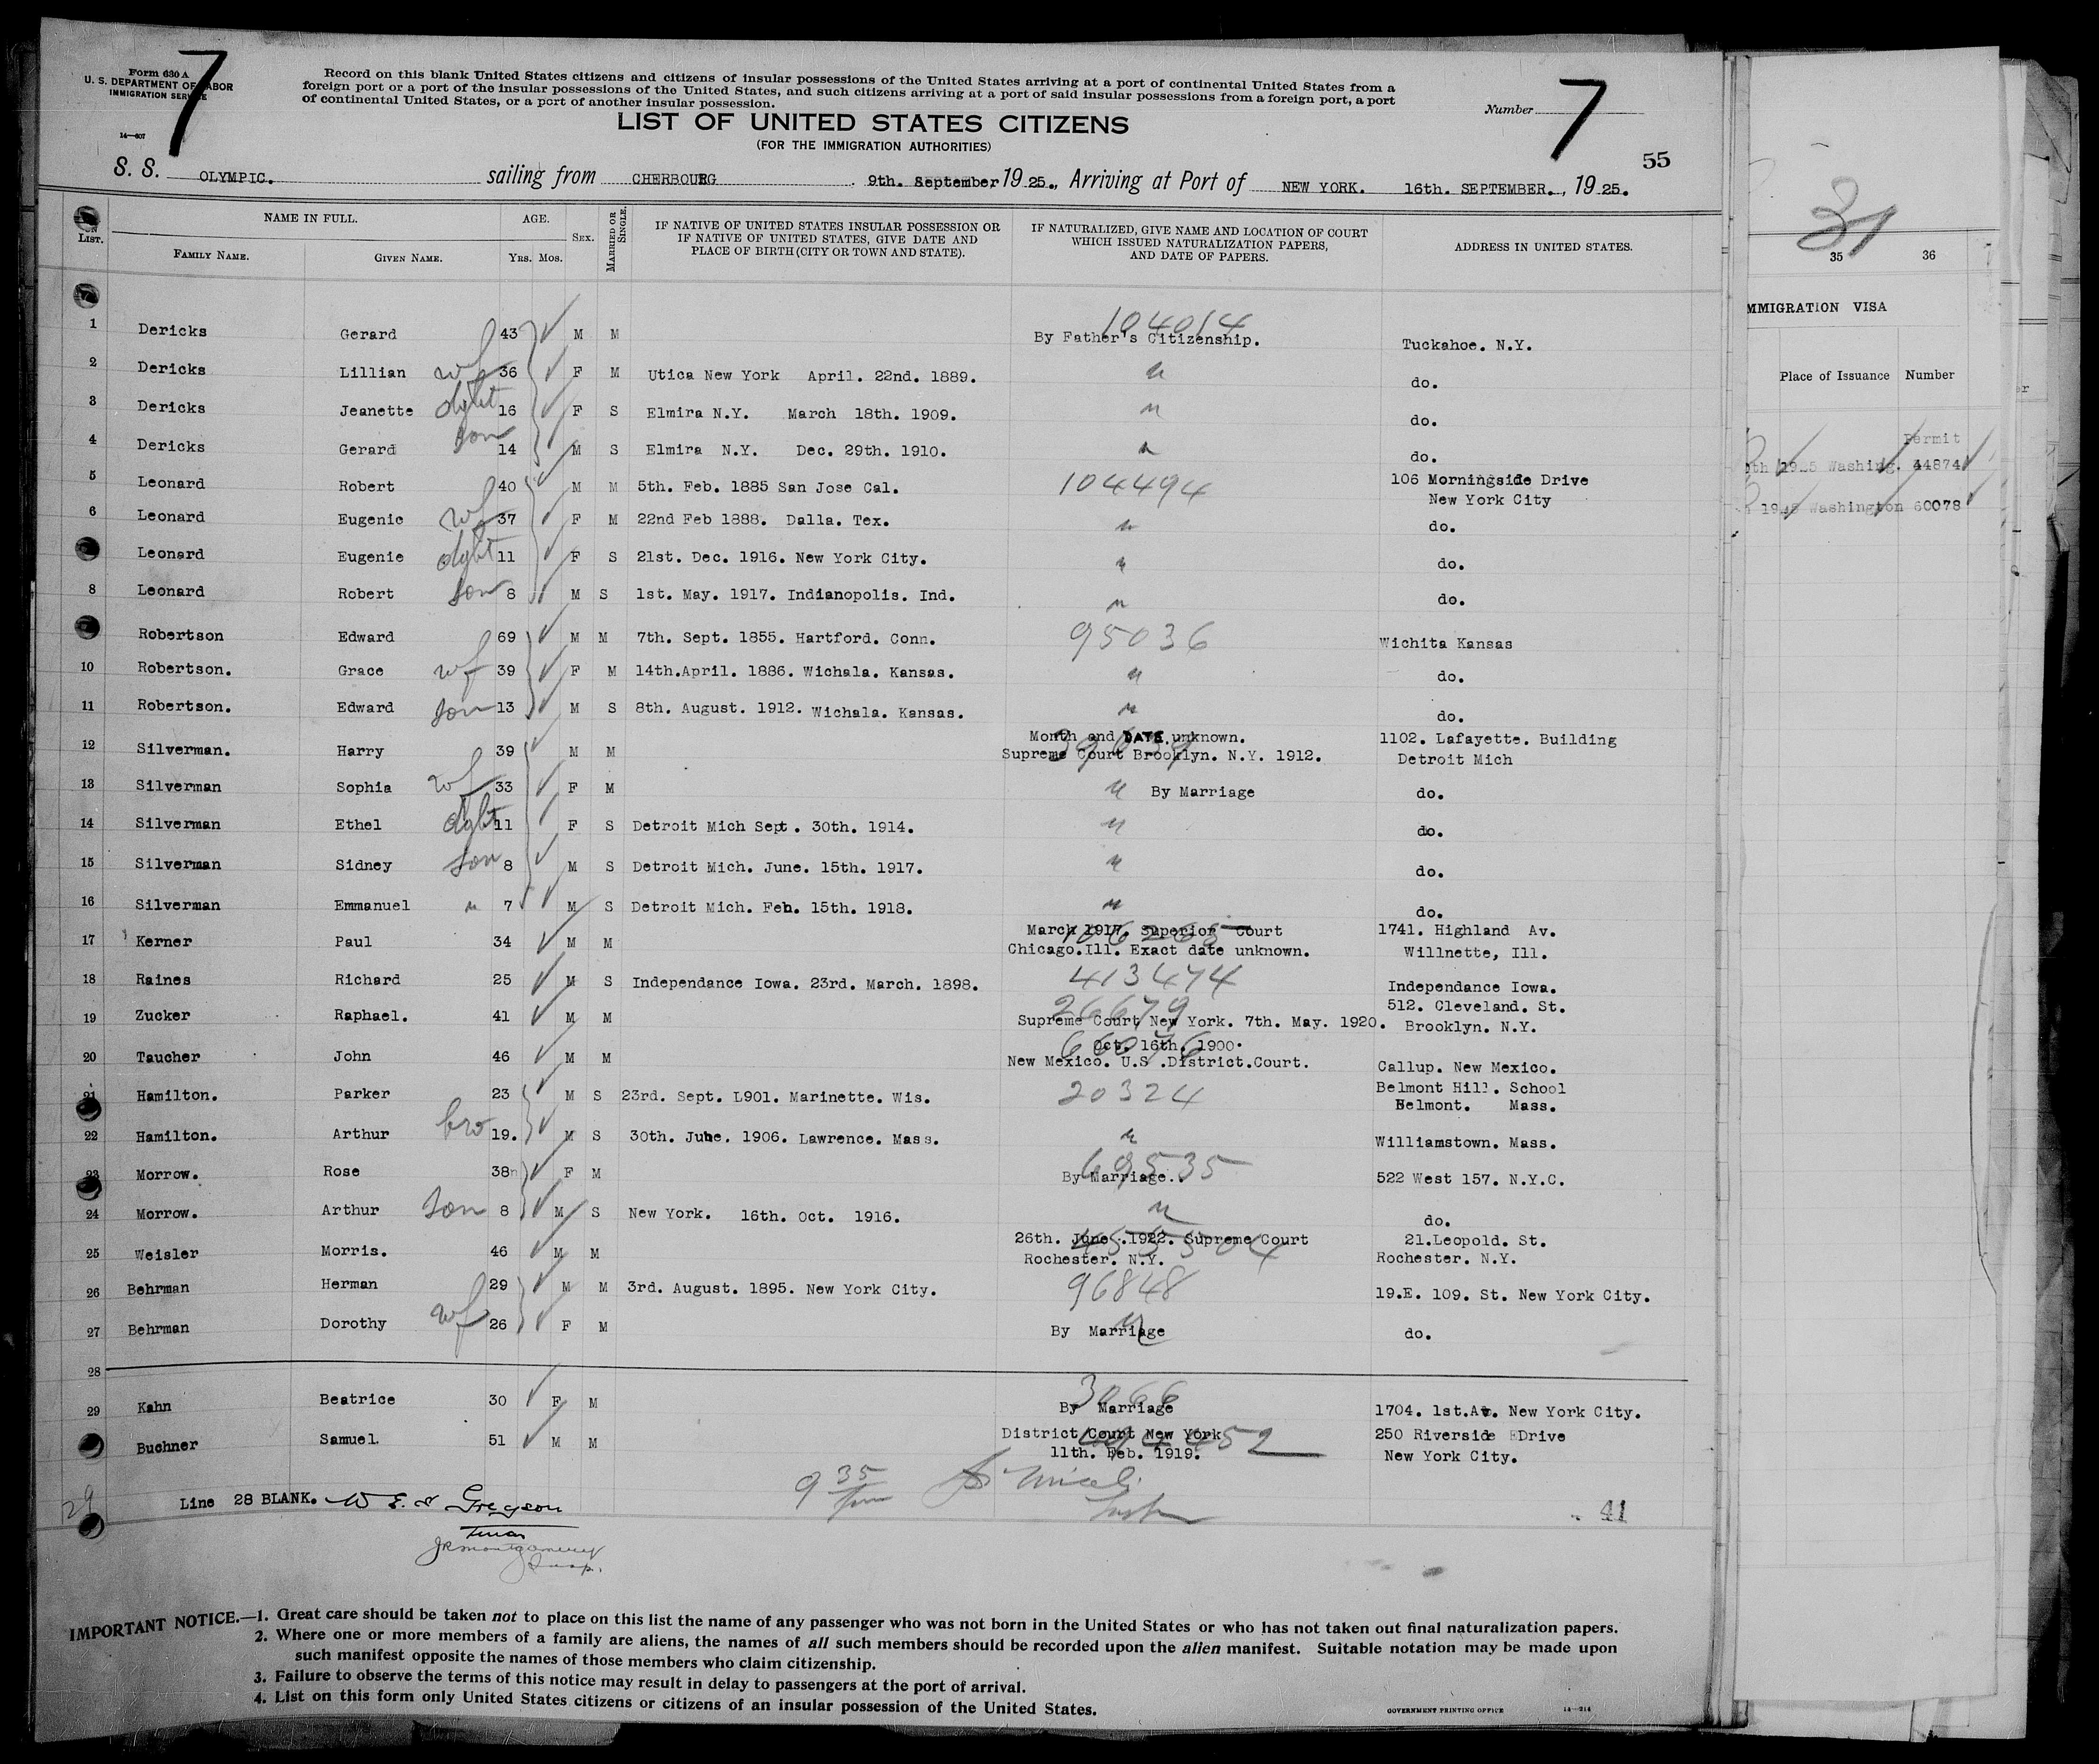 7
7
Form 630 A
U. S. DEPARTMENT OF LABOR
IMMIGRATION SERVICE
14—607
Record on this blank United States citizens and citizens of insular possessions of the United States arriving at a port of continental United States from a
foreign port or a port of the insular possessions of the United States, and such citizens arriving at a port of said insular possessions from a foreign port, a port
of continental United States, or a port of another insular possession.
Number
LIST OF UNITED STATES CITIZENS
(FOR THE IMMIGRATION AUTHORITIES)
55
S. S. OLYMPIC. sailing from CHERBOURG 9th. September 1925., Arriving at Port of NEW YORK. 16th. SEPTEMBER., 1925.
LIST. NAME IN FULL. AGE. SEX. MARRIED OR SINGLE. IF NATIVE OF UNITED STATES INSULAR POSSESSION OR IF NATIVE OF UNITED STATES, GIVE DATE AND PLACE OF BIRTH (CITY OR TOWN AND STATE). IF NATURALIZED, GIVE NAME AND LOCATION OF COURT WHICH ISSUED NATURALIZATION PAPERS, AND DATE OF PAPERS. ADDRESS IN UNITED STATES.
FAMILY NAME. GIVEN NAME. YRS. MOS.
1 Dericks Gerard 43 M M 104014 By Father's Citizenship. Tuckahoe. N.Y.
2 Dericks Lillian wf 36 F M Utica New York April. 22nd. 1889. " do.
3 Dericks Jeanette dght 16 F S Elmira N.Y. March 18th. 1909. " do.
4 Dericks Gerard son 14 M S Elmira N.Y. Dec. 29th. 1910. " do.
5 Leonard Robert 40 M M 5th. Feb. 1885 San Jose Cal. 104494 106 Morningside Drive
New York City
6 Leonard Eugenie wf 37 F M 22nd Feb 1888. Dalla. Tex. " do.
Leonard Eugenie dght 11 F S 21st. Dec. 1916. New York City. " do.
8 Leonard Robert son 8 M S 1st. May. 1917. Indianopolis. Ind. " do.
Robertson Edward 69 M M 7th. Sept. 1855. Hartford. Conn. 95036 Wichita Kansas
10 Robertson. Grace wf 39 F M 14th.April. 1886. Wichala. Kansas. " do.
11 Robertson. Edward son 13 M S 8th. August. 1912. Wichala. Kansas. " do.
12 Silverman. Harry 39 M M Month and DATE unknown. 1102. Lafayette. Building
Supreme Court Brooklyn. N.Y. 1912. Detroit Mich
13 Silverman Sophia wf 33 F M " By Marriage do.
14 Silverman Ethel dght 11 F S Detroit Mich Sept. 30th. 1914. " do.
15 Silverman Sidney son 8 M S Detroit Mich. June. 15th. 1917. " do.
16 Silverman Emmanuel " 7 M S Detroit Mich. Feb. 15th. 1918. " do.
17 Kerner Paul 34 M M March 1917. Superior Court 1741. Highland Av.
Chicago.Ill. Exact date unknown. Willnette, Ill.
18 Raines Richard 25 M S Independance Iowa. 23rd. March. 1898. 413474 Independance Iowa.
19 Zucker Raphael. 41 M M 26679 Supreme Court New York. 7th. May. 1920. 512. Cleveland. St.
Brooklyn. N.Y.
20 Taucher John 46 M M Oct. 16th. 1900.
66076 New Mexico. U.S.District.Court. Callup. New Mexico.
21 Hamilton. Parker 23 M S 23rd. Sept. L901. Marinette. Wis. 20324 Belmont Hill. School
Belmont. Mass.
22 Hamilton. Arthur bro 19. M S 30th. June. 1906. Lawrence. Mass. " Williamstown. Mass.
23 Morrow. Rose 38 F M 69535 By Marriage. 522 West 157. N.Y.C.
24 Morrow. Arthur son 8 M S New York. 16th. Oct. 1916. " do.
25 Weisler Morris. 46 M M 26th. June .1922. Supreme Court 21.Leopold. St.
Rochester. N.Y. Rochester. N.Y.
26 Behrman Herman 29 M M 3rd. August. 1895. New York City. 96848 19.E. 109. St. New York City.
27 Behrman Dorothy wf 26 F M " By Marriage do.
28
29 Kahn Beatrice 30 F M 3066 By Marriage 1704. 1st.Av. New York City.
Buchner Samuel 51 M M District Court New York 250 Riverside Drive
11th. Feb. 1919. New York City.
29 Line 28 BLANK. W E. S Gregson 9 35 41
JR Montgomery
Insp.
IMPORTANT NOTICE.—1. Great care should be taken not to place on this list the name of any passenger who was not born in the United States or who has not taken out final naturalization papers.
2. Where one or more members of a family are aliens, the names of all such members should be recorded upon the alien manifest. Suitable notation may be made upon
such manifest opposite the names of those members who claim citizenship.
3. Failure to observe the terms of this notice may result in delay to passengers at the port of arrival.
4. List on this form only United States citizens or citizens of an insular possession of the United States.
GOVERNMENT PRINTING OFFICE 14—214
31
35 36
MMIGRATION VISA
Place of Issuance Number
Permit
Washing. 44874
Washington 60078